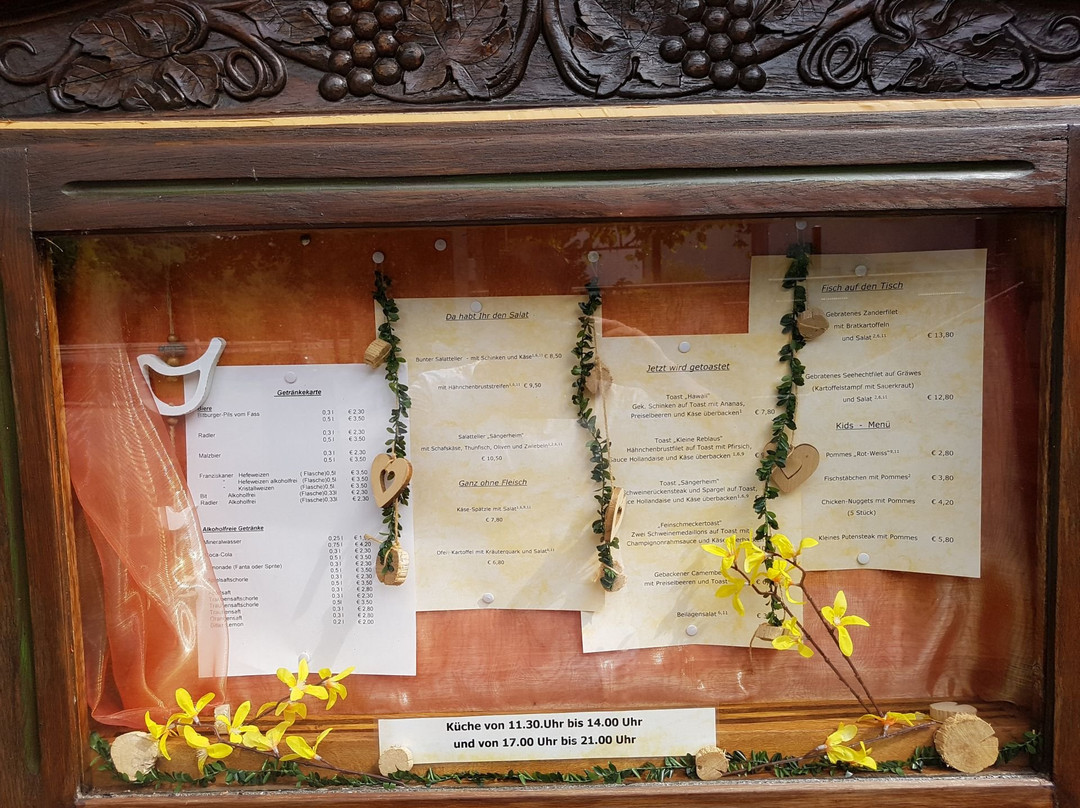 Getränkekarte
Biere
Bitburger-Pils vom Fass 0,3 l € 2,30
0,5 l € 3,50
Radler 0,3 l € 2,30
0,5 l € 3,50
Malzbier 0,3 l € 2,30
0,5 l € 3,50
Franziskaner Hefeweizen (Flasche)0,5l € 3,50
" Hefeweizen alkoholfrei (Flasche)0,5l € 3,50
" Kristallweizen (Flasche)0,5l € 3,50
Bit Alkoholfrei (Flasche)0,33l € 2,30
Radler Alkoholfrei (Flasche)0,33l € 2,30
Alkoholfreie Getränke
Mineralwasser 0,25 l
0,75 l € 4,20
Coca-Cola 0,3 l € 2,30
0,5 l € 3,50
(Fanta oder Sprite) 0,3 l € 2,30
0,5 l € 3,50
0,3 l € 2,30
0,5 l € 3,50
0,3 l
0,5 l € 3,50
0,3 l
0,5 l € 3,50
0,3 l € 2,80
0,3 l € 2,80
Lemon 0,2 l € 2,00
Da habt Ihr den Salat
Bunter Salatteller - mit Schinken und Käse € 8,50
mit Hähnchenbruststreifen € 9,50
Salatteller „Sängerheim"
mit Schafskäse, Thunfisch, Oliven und Zwiebeln
€ 10,50
Ganz ohne Fleisch
Käse-Spätzle mit Salat
€ 7,80
Ofen Kartoffel mit Kräuterquark und Salat
€ 6,80
Jetzt wird getoastet
Toast „Hawaii"
Gek. Schinken auf Toast mit Ananas,
Preiselbeeren und Käse überbacken € 7,80
Toast „Kleine Reblaus"
Hähnchenbrustfilet auf Toast mit Pfirsich,
Sauce Hollandaise und Käse überbacken
Toast „Sängerheim"
Schweinerückensteak und Spargel auf Toast,
Sauce Hollandaise und Käse überbacken
„Feinschmeckertoast"
Zwei Schweinemedaillons auf Toast mit
Champignonrahmsauce und Käse
Gebackener Camembert
mit Preiselbeeren und Toast
Beilagensalat €
Fisch auf den Tisch
Gebratenes Zanderfilet
mit Bratkartoffeln
und Salat € 13,80
Gebratenes Seehechtfilet auf Gräwes
(Kartoffelstampf mit Sauerkraut)
und Salat € 12,80
Kids - Menü
Pommes „Rot-Weiss" € 2,80
Fischstäbchen mit Pommes € 3,80
Chicken-Nuggets mit Pommes € 4,20
(5 Stück)
Kleines Putensteak mit Pommes € 5,80
Küche von 11.30.Uhr bis 14.00 Uhr
und von 17.00 Uhr bis 21.00 Uhr